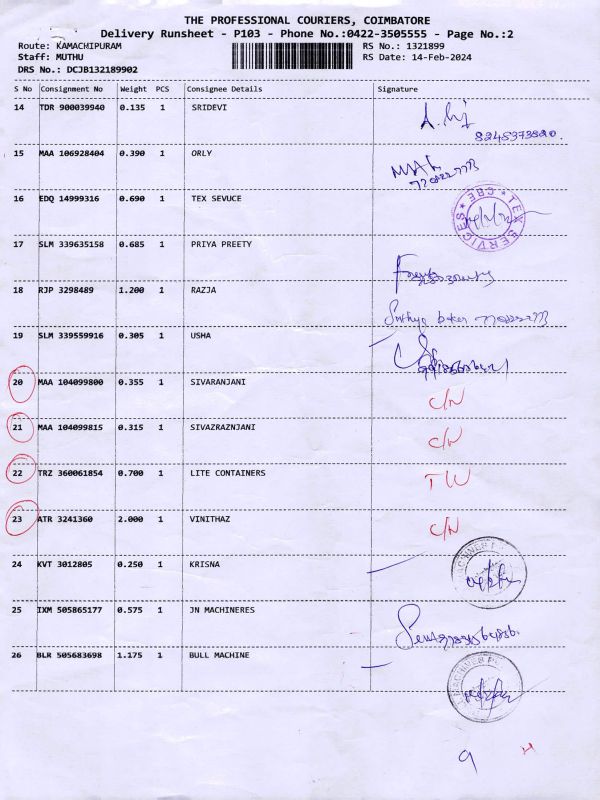 THE PROFESSIONAL COURIERS, COIMBATORE
Delivery Runsheet - P103 - Phone No.:0422-3505555 - Page No.:2
Route: KAMACHIPURAM RS No.: 1321899
Staff: MUTHU RS Date: 14-Feb-2024
DRS No.: DCJB132189902
S No Consignment No Weight PCS Consignee Details Signature
14 TDR 900039940 0.135 1 SRIDEVI
8245373820.
15 MAA 106928404 0.390 1 ORLY
16 EDQ 14999316 0.690 1 TEX SEVUCE
TEX SERVICES CBE
17 SLM 339635158 0.685 1 PRIYA PREETY
18 RJP 3298489 1.200 1 RAZJA
19 SLM 339559916 0.305 1 USHA
20 MAA 104099800 0.355 1 SIVARANJANI C/N
21 MAA 104099815 0.315 1 SIVAZRAZNJANI C/N
22 TRZ 360061854 0.700 1 LITE CONTAINERS
23 ATR 3241360 2.000 1 VINITHAZ C/N
24 KVT 3012805 0.250 1 KRISNA
25 IXM 505865177 0.575 1 JN MACHINERES
26 BLR 505683698 1.175 1 BULL MACHINE
9